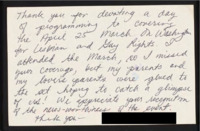 Thank you for devoting a day
of programming to covering
the April 25 March On Washington
for Lesbian and Gay Rights. I
attended the March, so I missed
your coverage, but my parents and
my lover's parents were glued to
the set hoping to catch a glimpse
of us! We appreciate your recognition
of the newsworthiness of the event.
Thank you